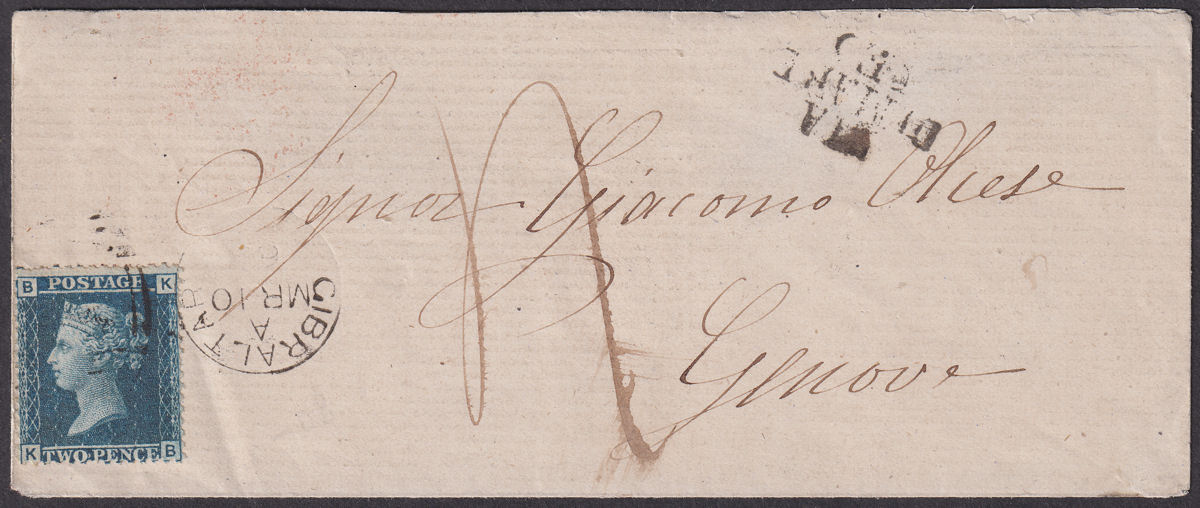 VIA
DI MARE
(E)
Signor Giacomo Chiese
Genova
GIBRALTAR
A
MR 10
B POSTAGE K
K TWO PENCE B